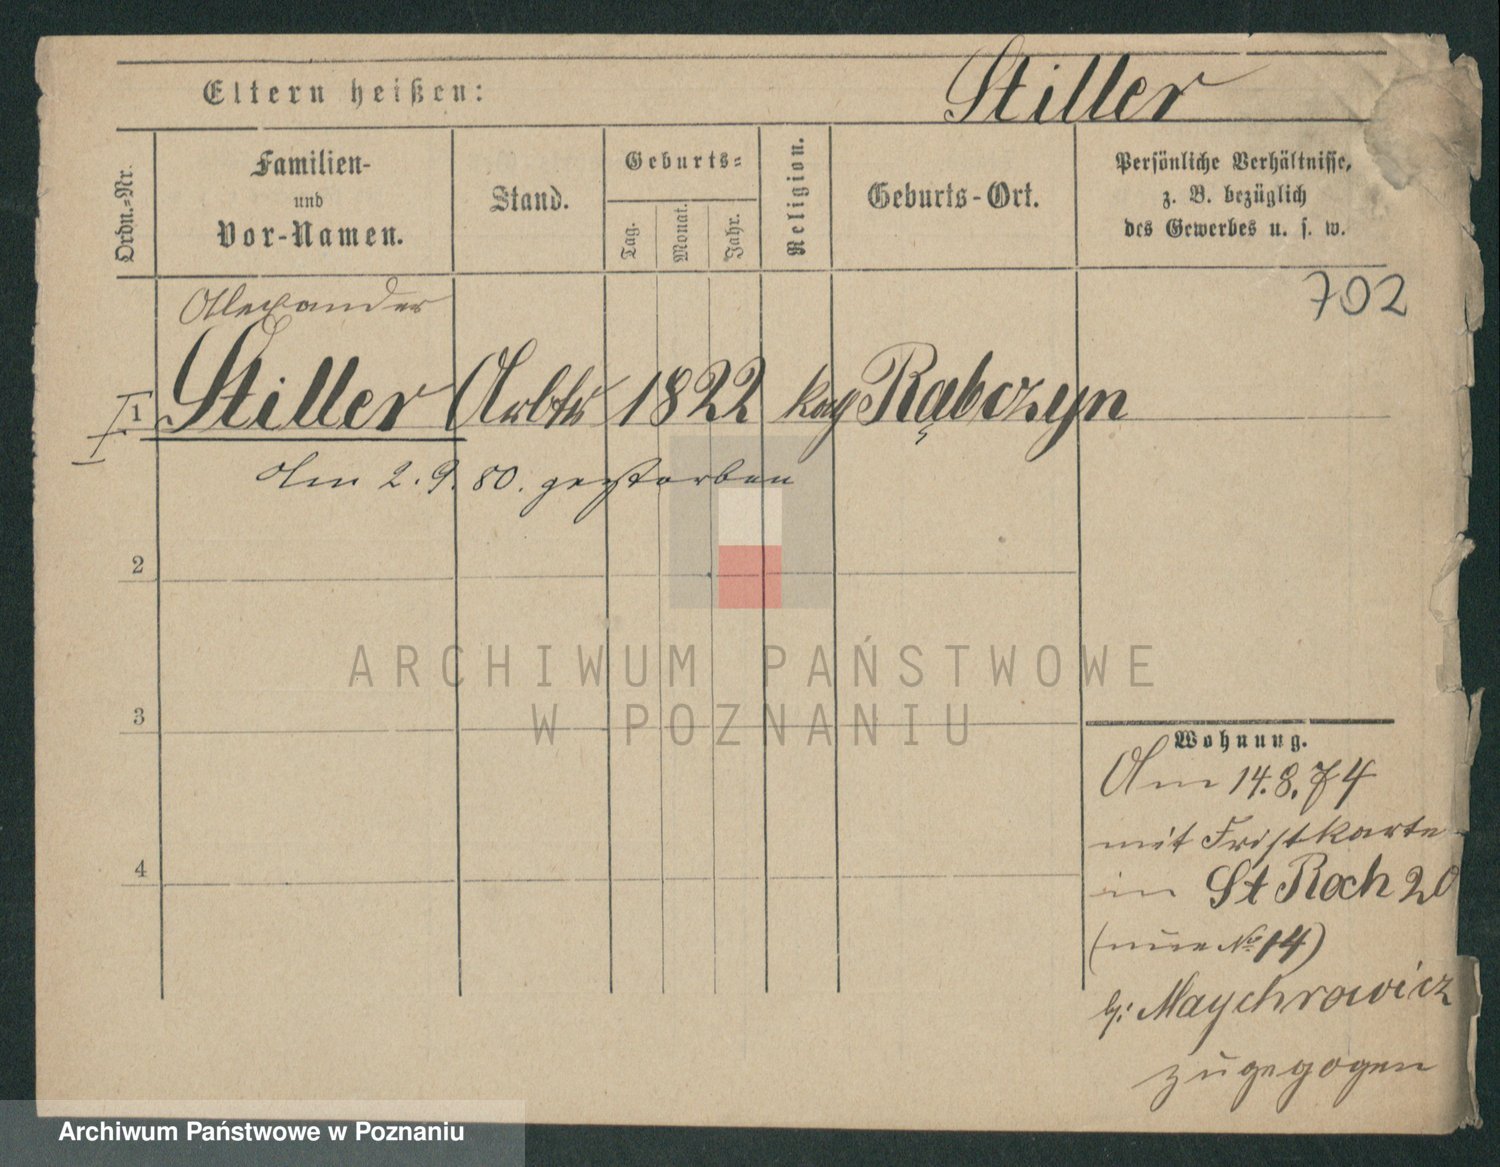 Stiller
Eltern heißen:
Ordn.-Nr.
Familien-
und
Vor-Namen.
Stand.
Geburts-
Tag.
Monat.
Jahr.
Religion.
Geburts-Ort.
Persönliche Verhältnisse,
z. B. bezüglich
des Gewerbes u. s. w.
702
Alexander
I 1 Stiller Arbtr 1822 kath Rąbczyn
Am 2.9.80. gestorben
2
3
4
Wohnung.
Am 14.8.74
mit Fristkarte
in St Roch 20
(neue No 14)
b: Maychrowicz
zugezogen
ARCHIWUM PAŃSTWOWE
W POZNANIU
Archiwum Państwowe w Poznaniu